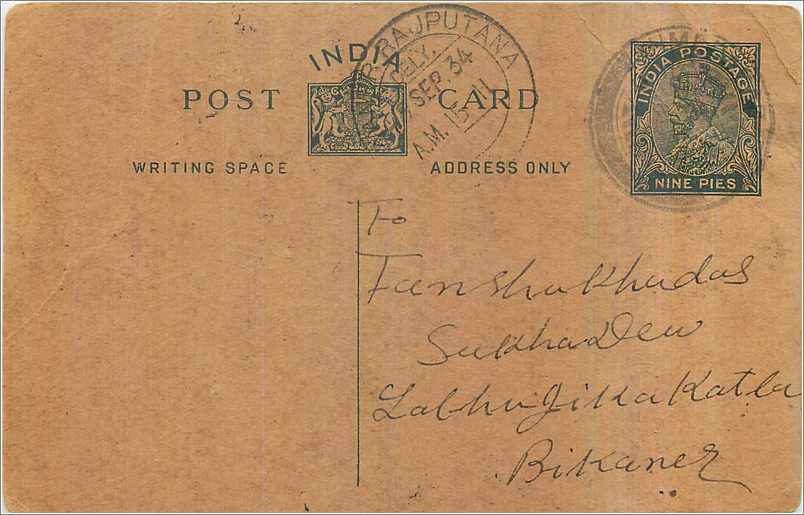 INDIA
POST CARD
WRITING SPACE ADDRESS ONLY
RAJPUTANA
DELY.
SEP 34
A.M. 15
INDIA POSTAGE
NINE PIES
To
Fanshukhudas
SukhaDew
LabhuJikaKatla
Bikaner